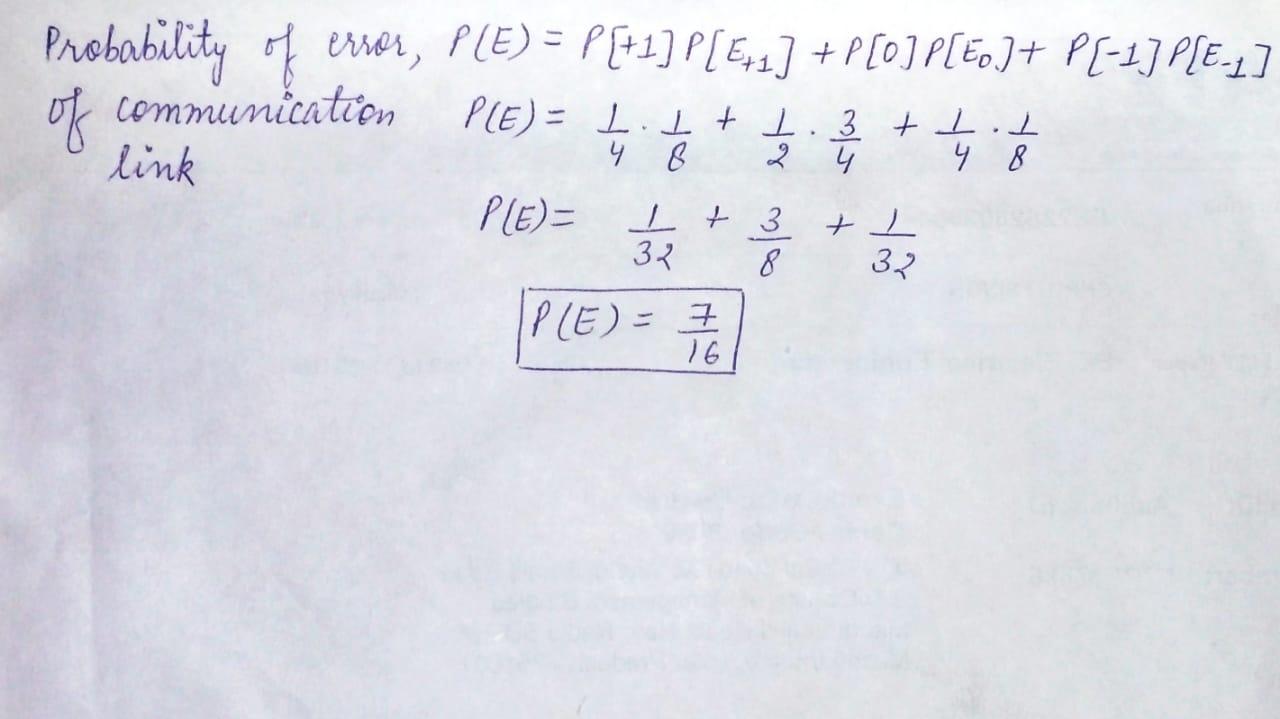 Probability of error, P(E) = P[+1]P[E₊₁] + P[0]P[E₀] + P[-1]P[E₋₁]
of communication P(E) = 1/4 · 1/8 + 1/2 · 3/4 + 1/4 · 1/8
link
P(E) = 1/32 + 3/8 + 1/32
P(E) = 7/16